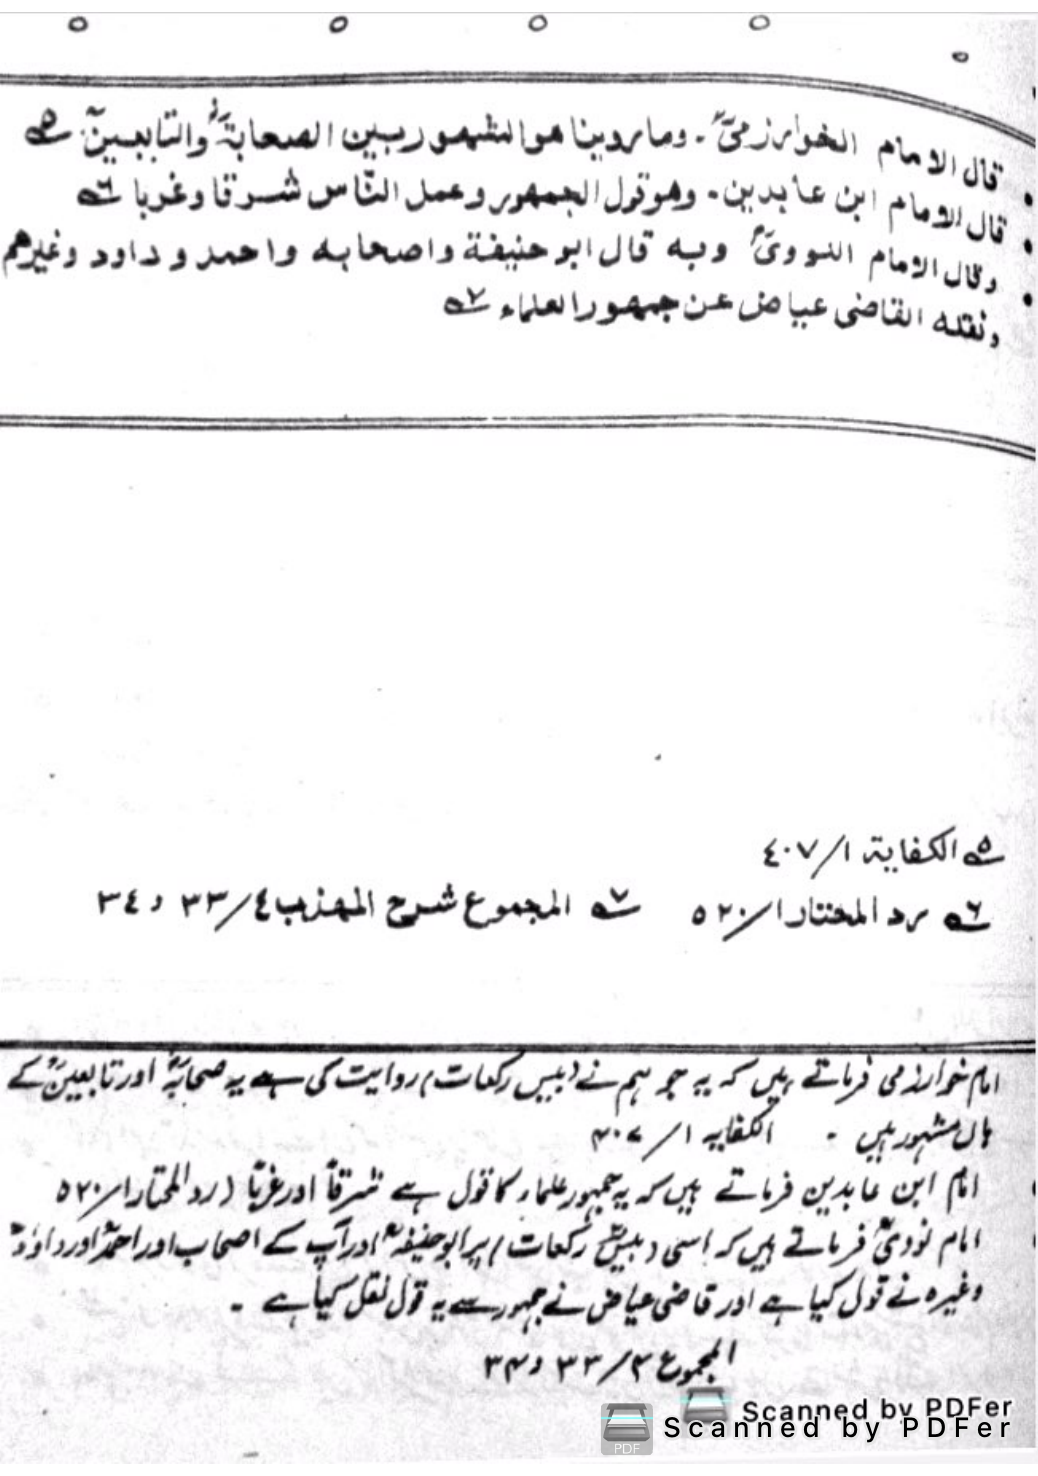 قال الامام الخوارزمیؒ ۔ وما روینا هو المشهور بین الصحابةؓ والتابعینؒ ۵
قال الامام ابن عابدین ۔ وهو قول الجمهور وعمل النّاس شرقا وغربا ۶
وقال الامام النوویؒ وبه قال ابو حنیفة واصحابه واحمد و داود وغیرهم
ونقله القاضی عیاض عن جمهور العلماء ۷
۵ الکفایة ۱/٤۰۷
۶ رد المختار ۱/۵۲۰ ۷ المجموع شرح المهذب ٤/۳۳ و ۳٤
امام خوارزمی فرماتے ہیں کہ یہ جو ہم نے (بیس رکعات) روایت کی ہے یہ صحابہؓ اور تابعینؒ کے
ہاں مشہور ہیں ۔ الکفایہ ۱/۴۰۷
امام ابن عابدین فرماتے ہیں کہ یہ جمہور علماء کا قول ہے شرقاً اور غرباً (رد المختار ۱/۵۲۰
امام نوویؒ فرماتے ہیں کہ اسی (بیس رکعات) پر ابوحنیفہؒ اور آپ کے اصحاب اور احمدؒ اور داؤدؒ
وغیرہ نے قول کیا ہے اور قاضی عیاض نے جمہور سے یہ قول نقل کیا ہے ۔
المجموع ۴/۳۳ و ۳۴
Scanned by PDFer
Scanned by PDFer
PDF